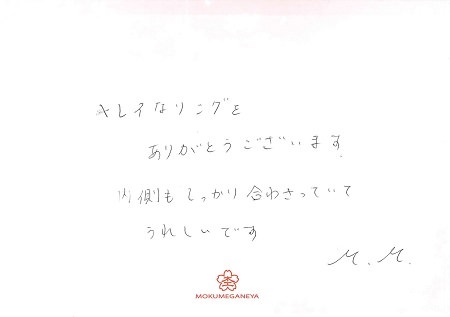 キレイなリングを
ありがとうございます
内側もしっかり合わさっていて
うれしいです
M.M.
MOKUMEGANEYA